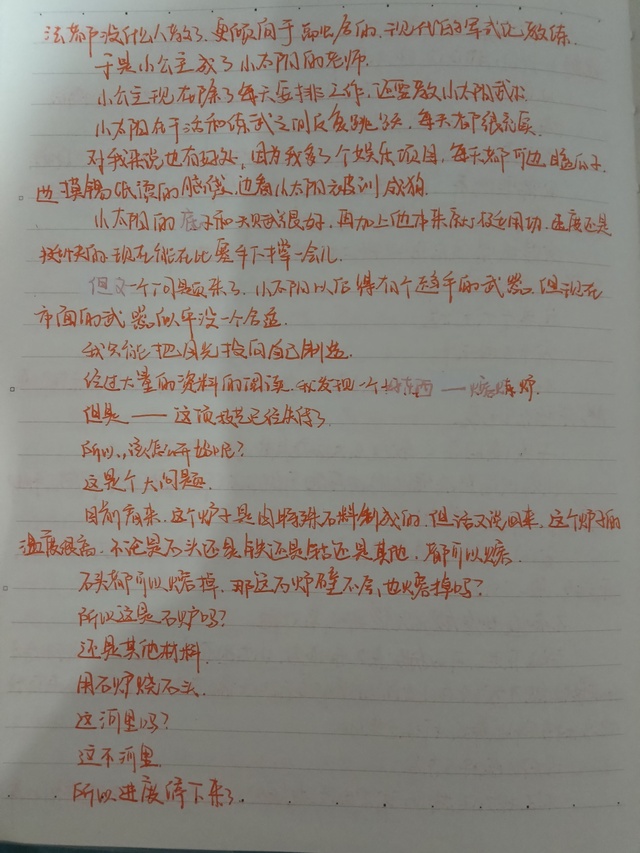 法都没什么人教了.更倾向于那些后的.现代的军式化教练.
于是小公主成了小太阳的老师.
小公主现在除了每天安排工作.还要教小太阳武术.
小太阳在干活和练武之间反复跳跃.每天都很充实.
对我来说也有好处.因为我多了个娱乐项目.每天都可边嗑瓜子.
边摸锡纸烫的腰线.边看小太阳被训成狗.
小太阳的底子和天赋很好.再加上他本来就极其用功.速度还是
挺快的.现在能在比蒙手下撑一会儿.
但又一个问题来了.小太阳以后得有个趁手的武器.但现在
市面的武器似乎没一个合适.
我只能把目光投向自己制造.
经过大量的资料的阅读.我发现一个好东西——熔炼炉.
但是——这项技艺已经失传了.
所以.该怎么开始呢?
这是个大问题.
目前看来.这个炉子是由特殊石料制成的.但话又说回来.这个炉子的
温度很高.不论是石头还是铁还是钻还是其他.都可以熔.
石头都可以熔掉.那这石炉壁不后.也熔掉吗?
所以这是石炉吗?
还是其他材料.
用石炉烧石头.
这河里吗?
这不河里.
所以进度停下来了.